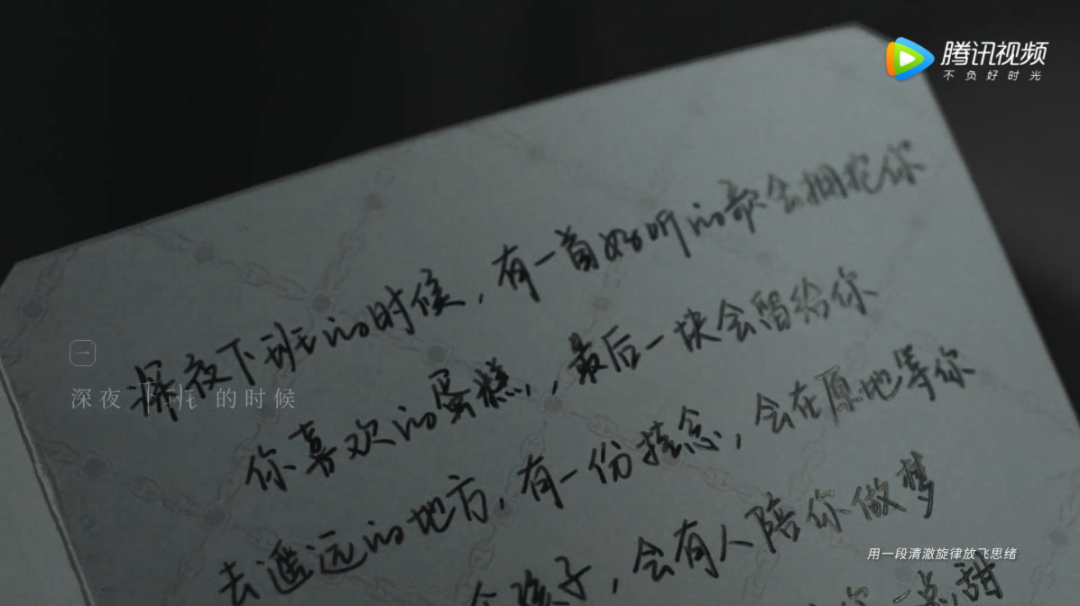 腾讯视频
不负好时光
深夜下班的时候，有一首好听的歌会拥抱你
一
深夜下班的时候
你喜欢的蛋糕，最后一块会留给你
去遥远的地方，有一份挂念，会在原地等你
孩子，会有人陪你做梦
用一段清澈旋律放飞思绪
一点甜